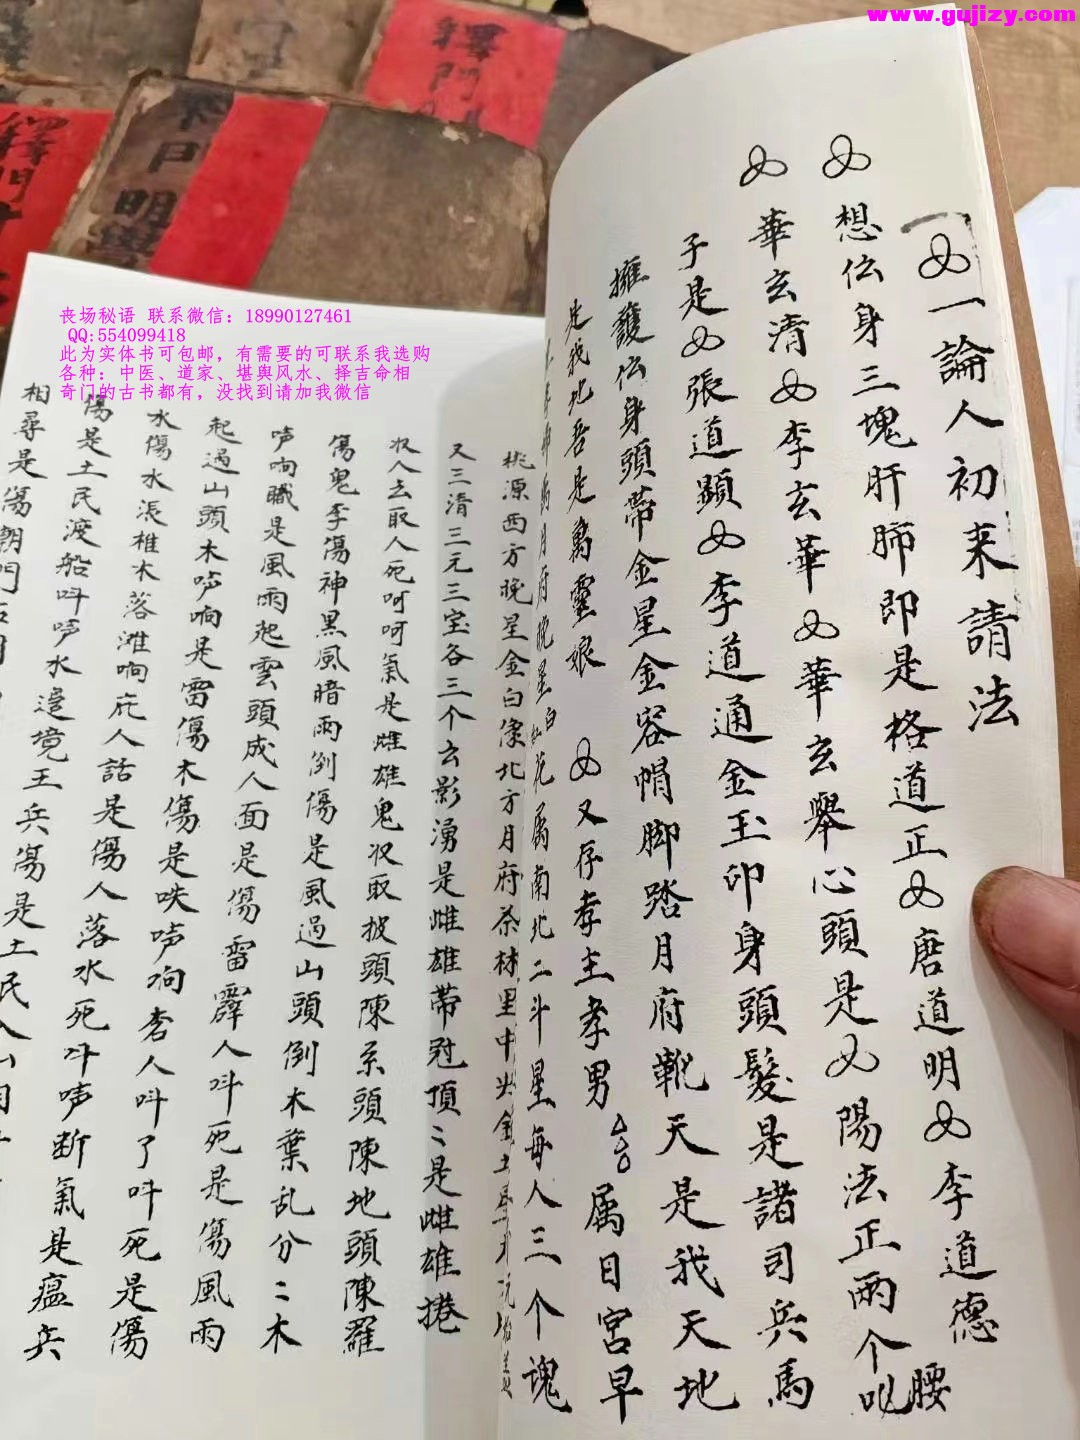 www.gujizy.com
丧场秘语 联系微信：18990127461
QQ:554099418
此为实体书可包邮，有需要的可联系我选购
各种：中医、道家、堪舆风水、择吉命相
奇门的古书都有，没找到请加我微信
釋門
釋門
明
一論人初来請法
想伝身三塊肝肺即是格道正 唐道明 李道德
華玄清 李玄華 華玄舉心頭是 陽法正兩个 腰
子是 張道顕 李道通金玉印身頭髮是諸司兵馬
擁護伝身頭帶金星金容帽脚踏月府靴天是我天地
是我地吾是萬靈娘 又存孝主孝男 属日宮早
月府晚星白 花属南北二斗星每人三个魂
桃源西方晚星金白像北方月府茶林里中央金土
又三清三元三宝各三个玄影湧是雌雄帶冠頂〻是雌雄捲
收人去取人死呵呵氣是雌雄鬼收取披頭陳系頭陳地頭陳羅
傷鬼李傷神黑風暗雨倒傷是風過山頭倒木葉乱分〻木
声响職是風雨起雲頭成人面是傷雷霹人呌死是傷風雨
起過山頭木声响是雷傷木傷是呋声响 人呌了呌死是傷
水傷水漲椎木落滩响 人話是傷人落水死呌声断氣是瘟兵
傷是土民渡船呌声水邉境王兵傷是土民入山
相尋是傷朝門